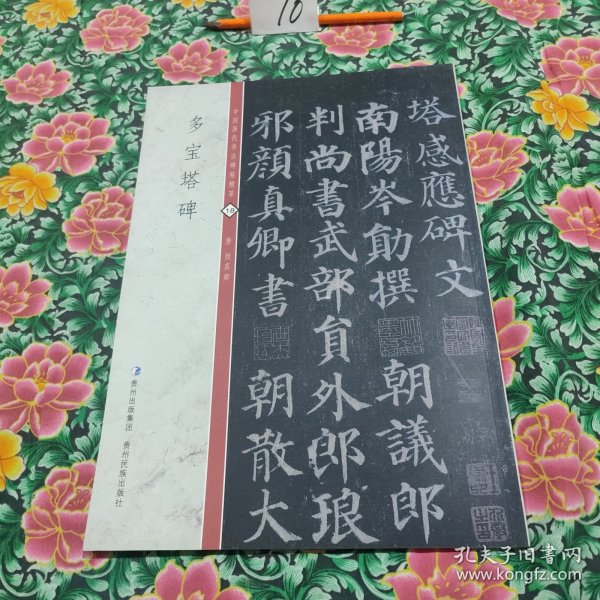 10
多宝塔碑
中国历代书法碑帖精萃
18
唐 颜真卿
贵州出版集团 贵州民族出版社
塔感應碑文
南陽岑勛撰 朝議郎
判尚書武部員外郎琅
邪顏真卿書 朝散大
孔夫子旧书网
www.kongfz.com